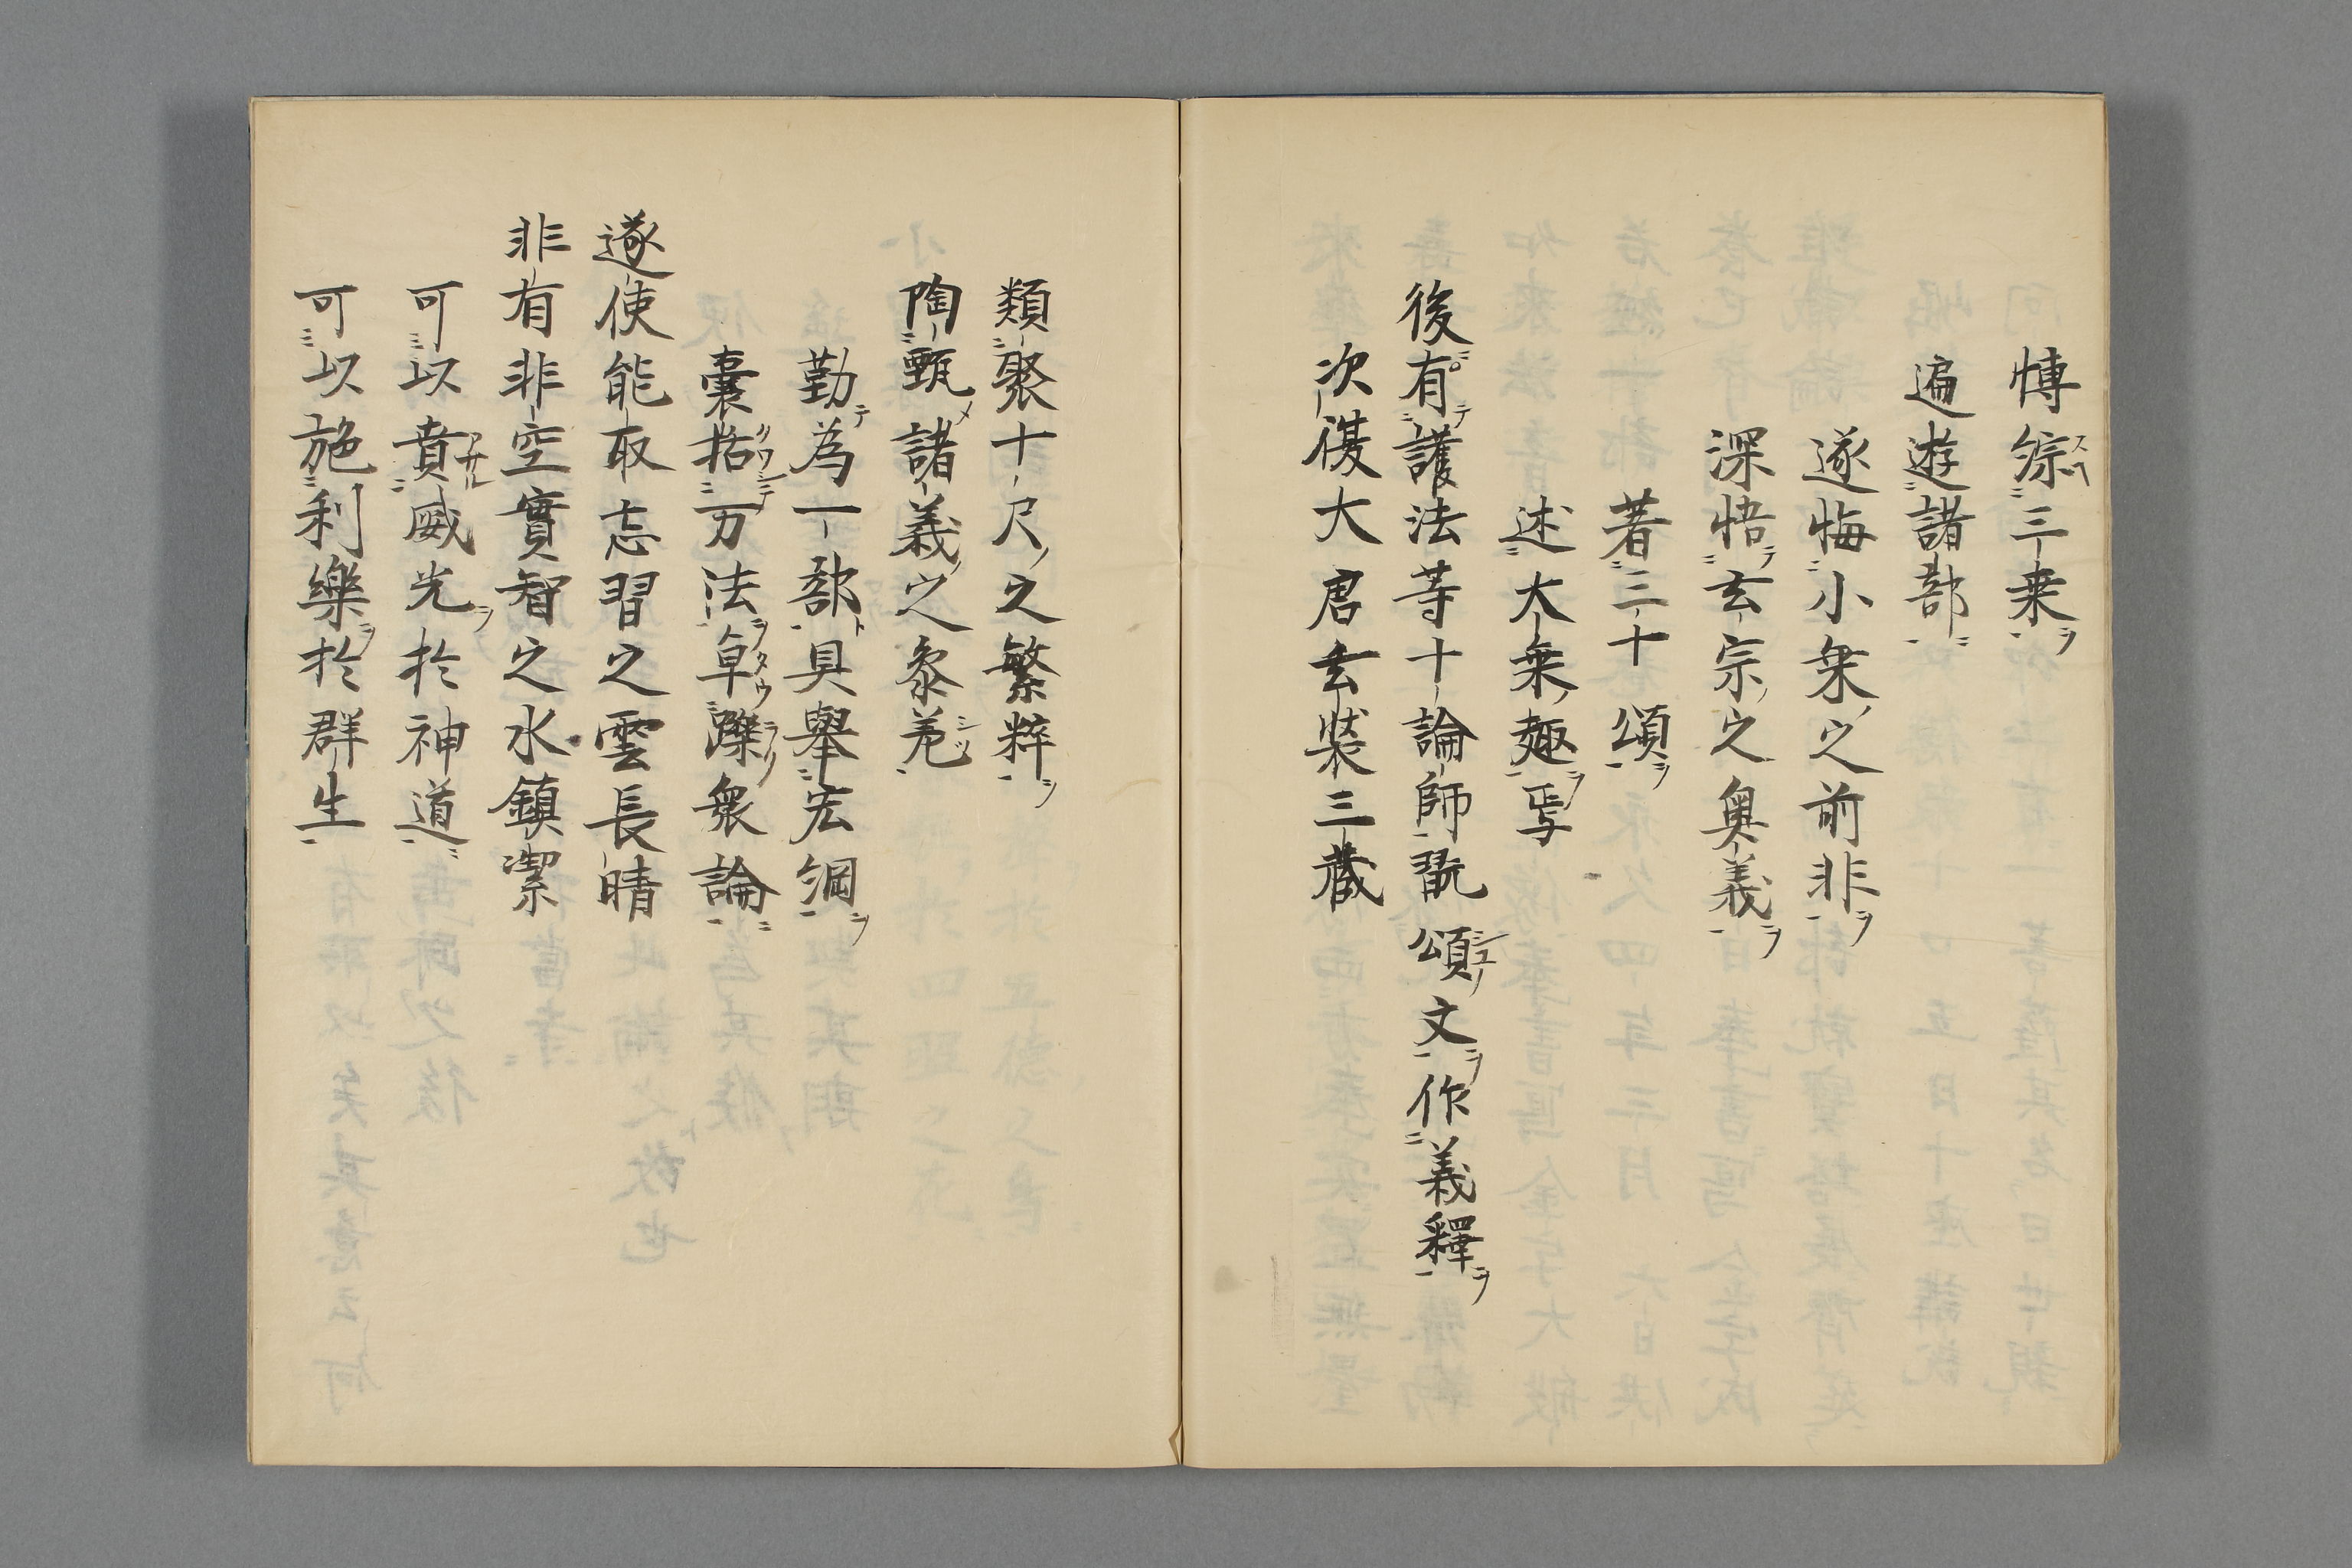 博綜三乗
遍遊諸部
遂悔小乗之前非
深悟玄宗之奥義
著三十頌
述大乗趣焉
後有護法等十論師翫頌文作義釋
次復大唐玄奘三藏
類聚十尺之繁粹
陶甄諸義之参差
勤為一部具舉宏綱
囊括万法卓躒衆論
遂使能取忘習之雲長晴
非有非空實智之水鎮潔
可以賁威光於神道
可以施利樂於群生